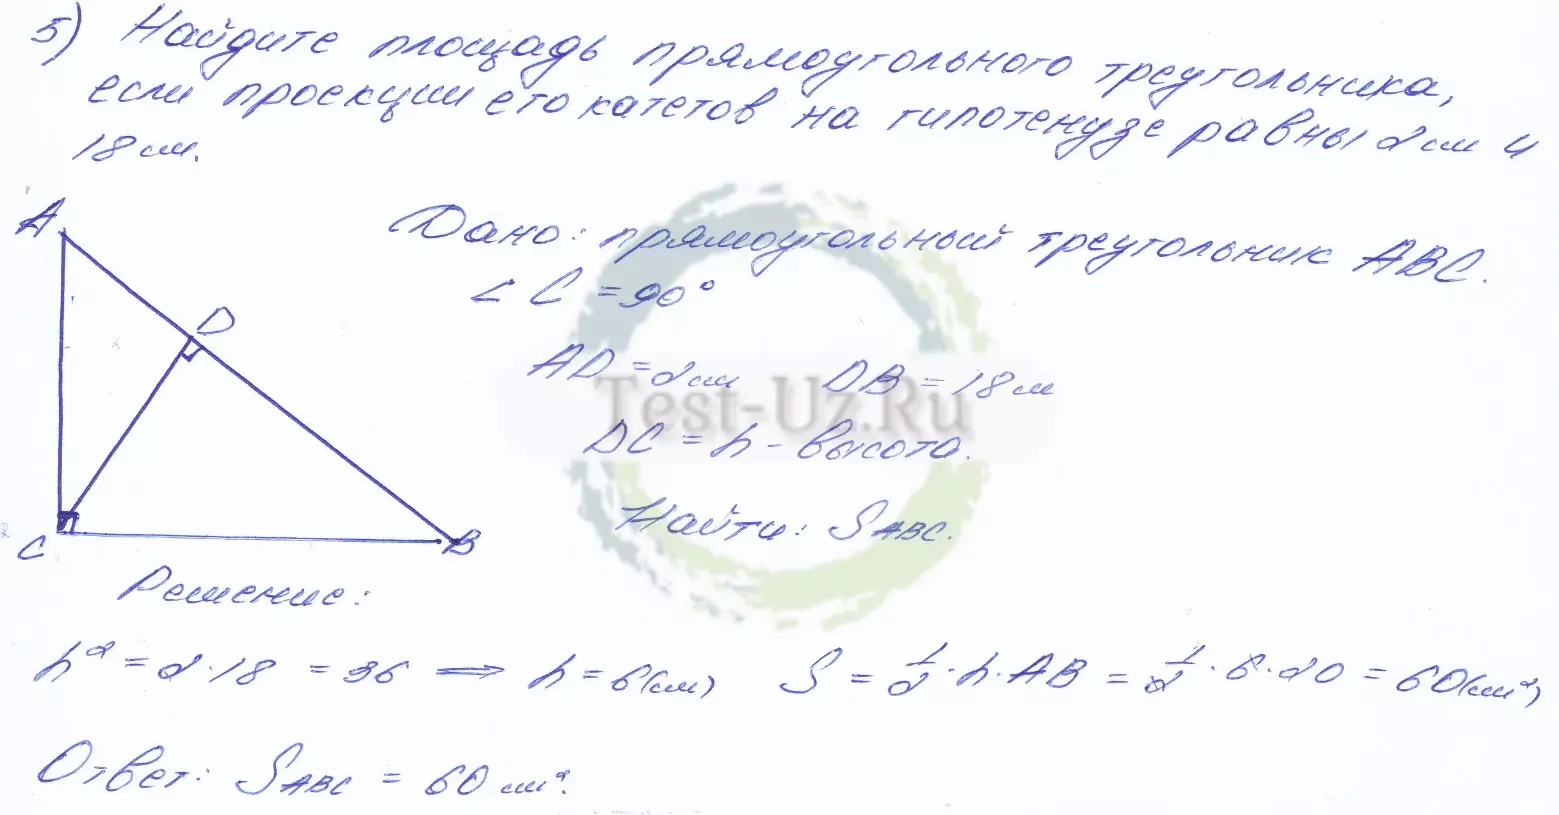 5) Найдите площадь прямоугольного треугольника,
если проекции его катетов на гипотенузе равны 2 см и
18 см.
A
Дано: прямоугольный треугольник ABC.
∠ C = 90°
D
AD = 2 см DB = 18 м
Test-Uz.Ru
DC = h - высота.
Найти: S ABC.
C
B
Решение:
h² = 2 · 18 = 36 ⟹ h = 6 (см) S = 1/2 · h · AB = 1/2 · 6 · 20 = 60 (см²)
Ответ: S ABC = 60 см².